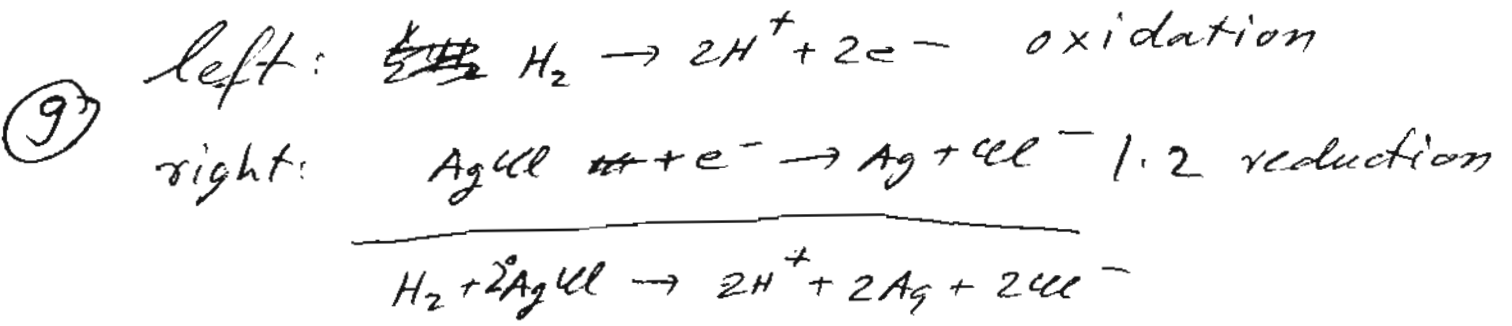 left: H₂ → 2H⁺ + 2e⁻ oxidation
9
right: AgCl + e⁻ → Ag + Cl⁻ |·2 reduction
H₂ + 2AgCl → 2H⁺ + 2Ag + 2Cl⁻